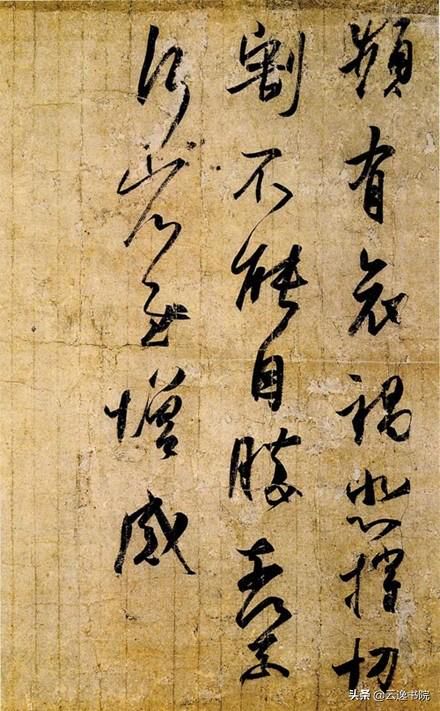 頻有哀禍悲摧切
割不能自勝奈何奈
何省慰增感
头条 @云逸书院